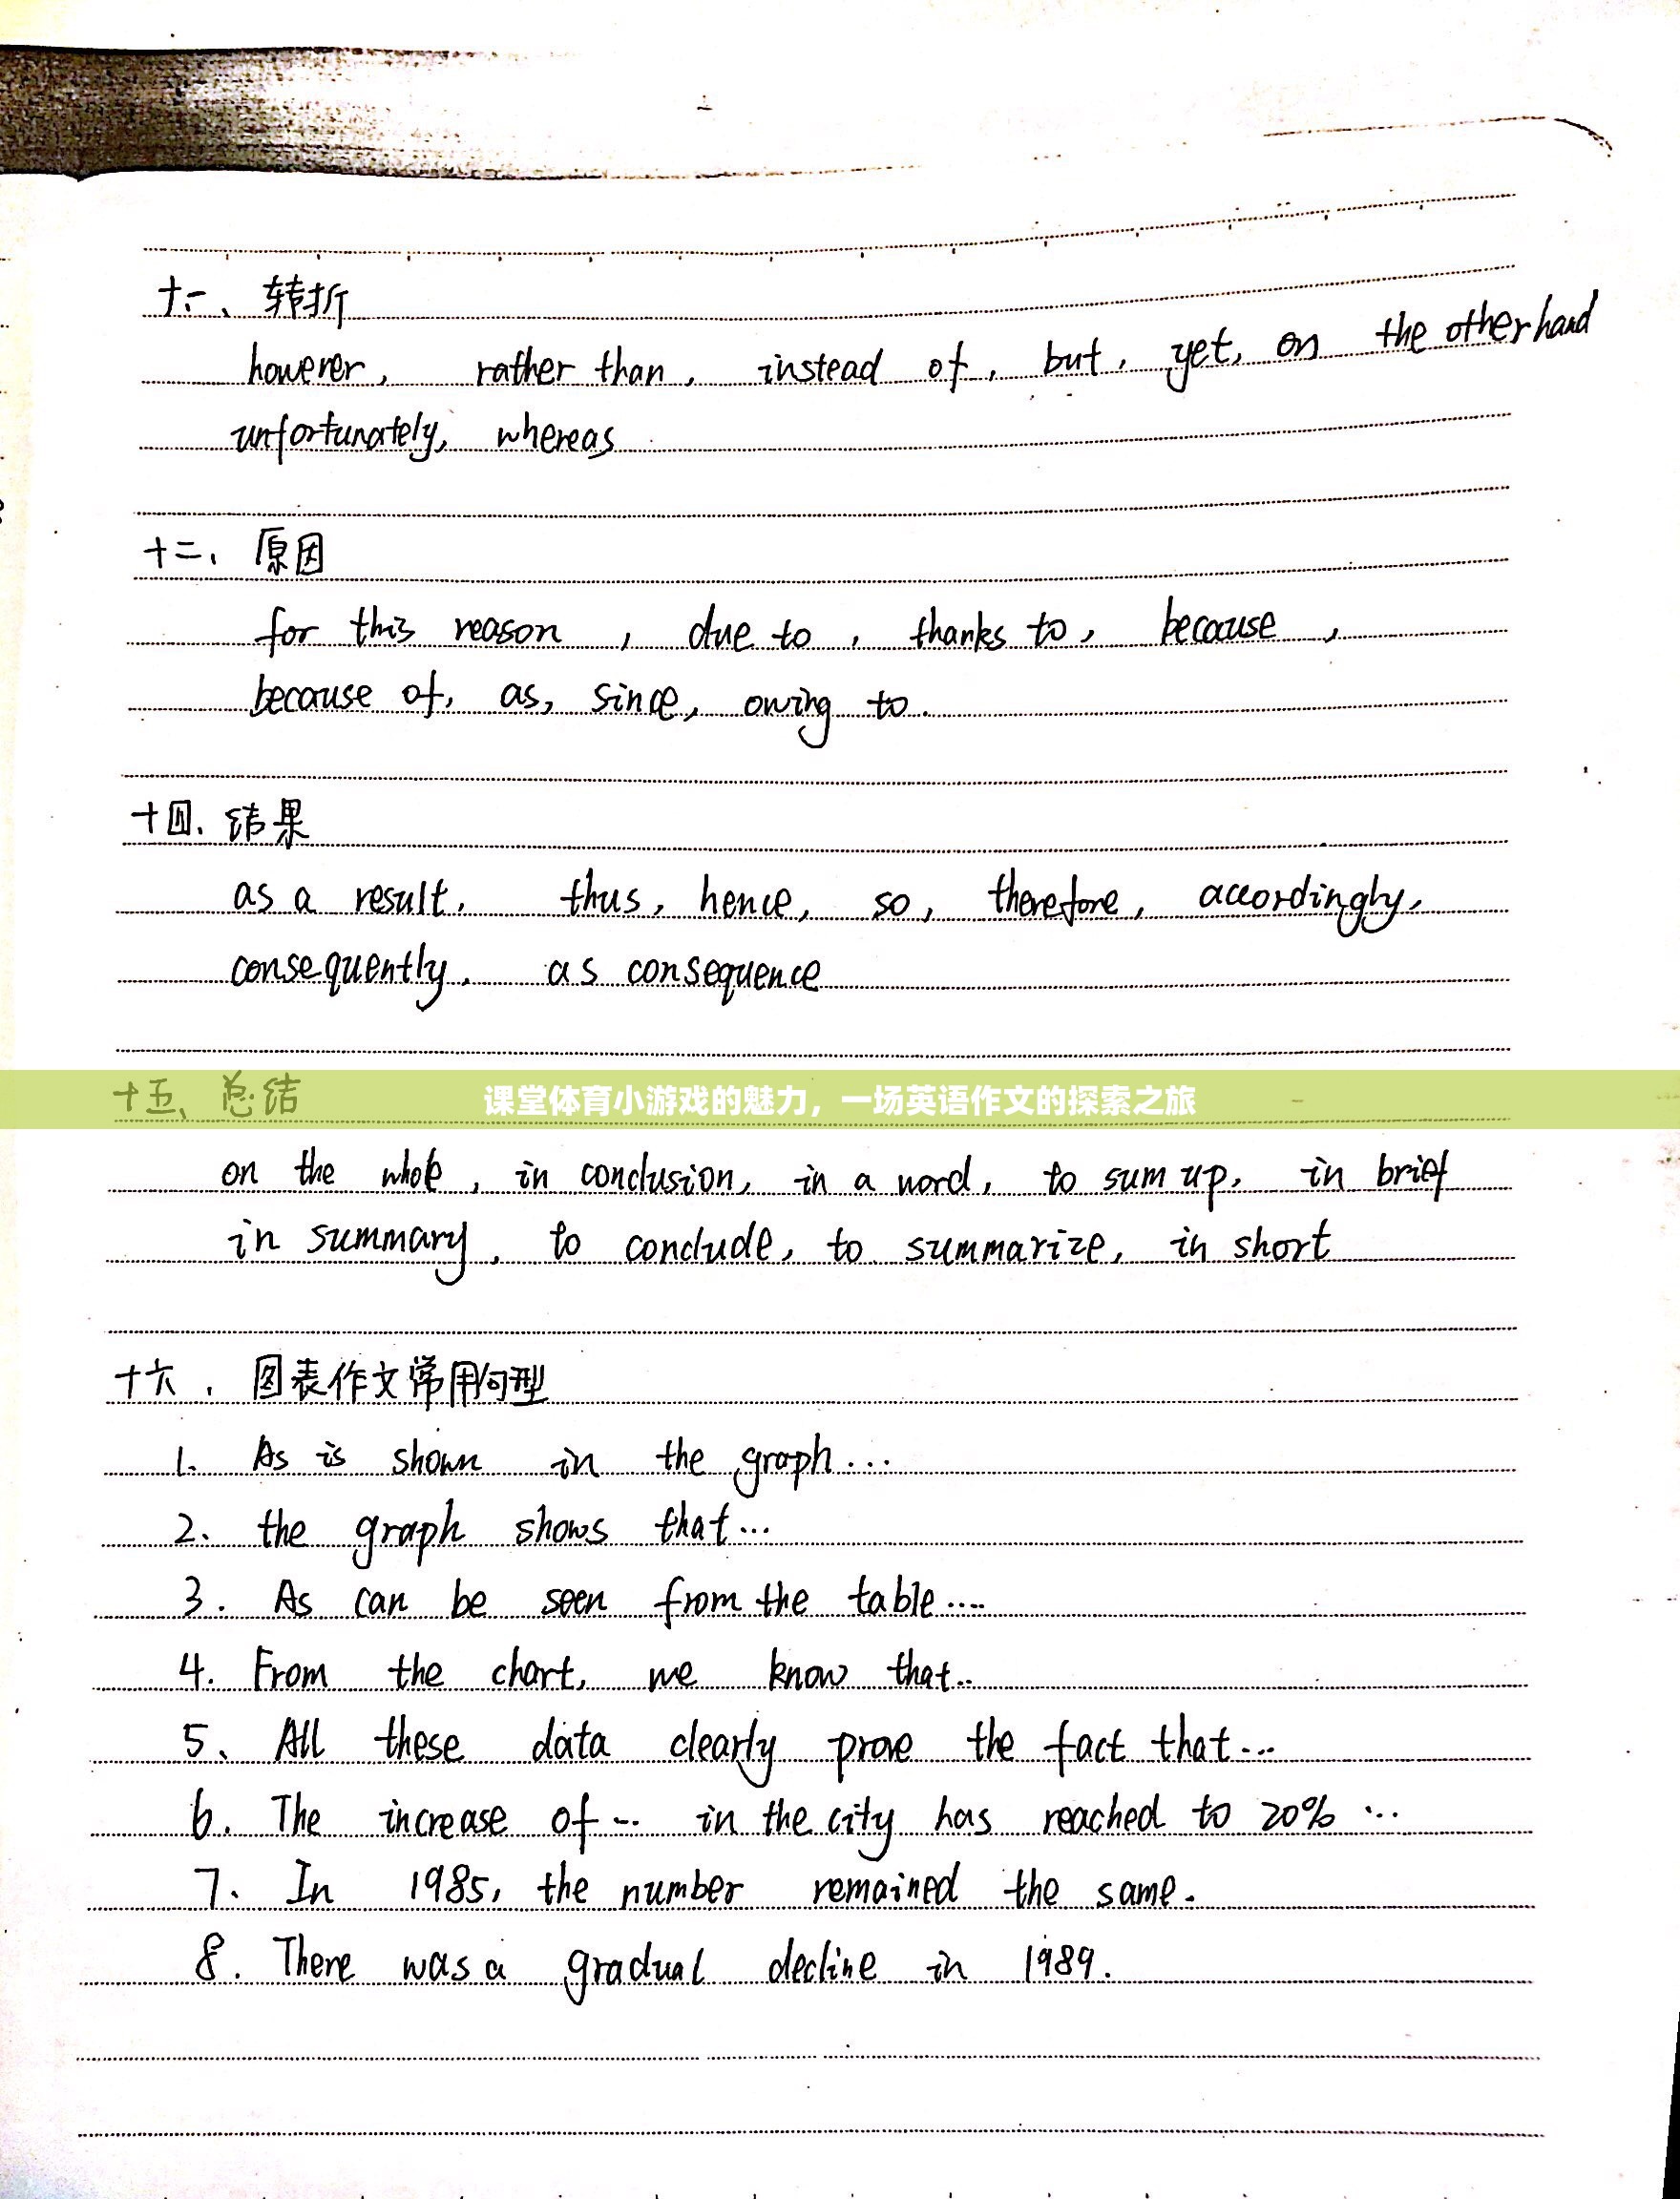 十一、转折
however, rather than, instead of, but, yet, on the other hand
unfortunately, whereas
十二、原因
for this reason, due to, thanks to, because,
because of, as, since, owing to.
十四、结果
as a result, thus, hence, so, therefore, accordingly,
consequently, as consequence
十五、总结
课堂体育小游戏的魅力，一场英语作文的探索之旅
on the whole, in conclusion, in a word, to sum up, in brief
in summary, to conclude, to summarize, in short
十六、图表作文常用句型
1. As is shown in the graph...
2. the graph shows that...
3. As can be seen from the table....
4. From the chart, we know that..
5、All these data clearly prove the fact that...
6. The increase of... in the city has reached to 20% ...
7. In 1985, the number remained the same.
8. There was a gradual decline in 1989.